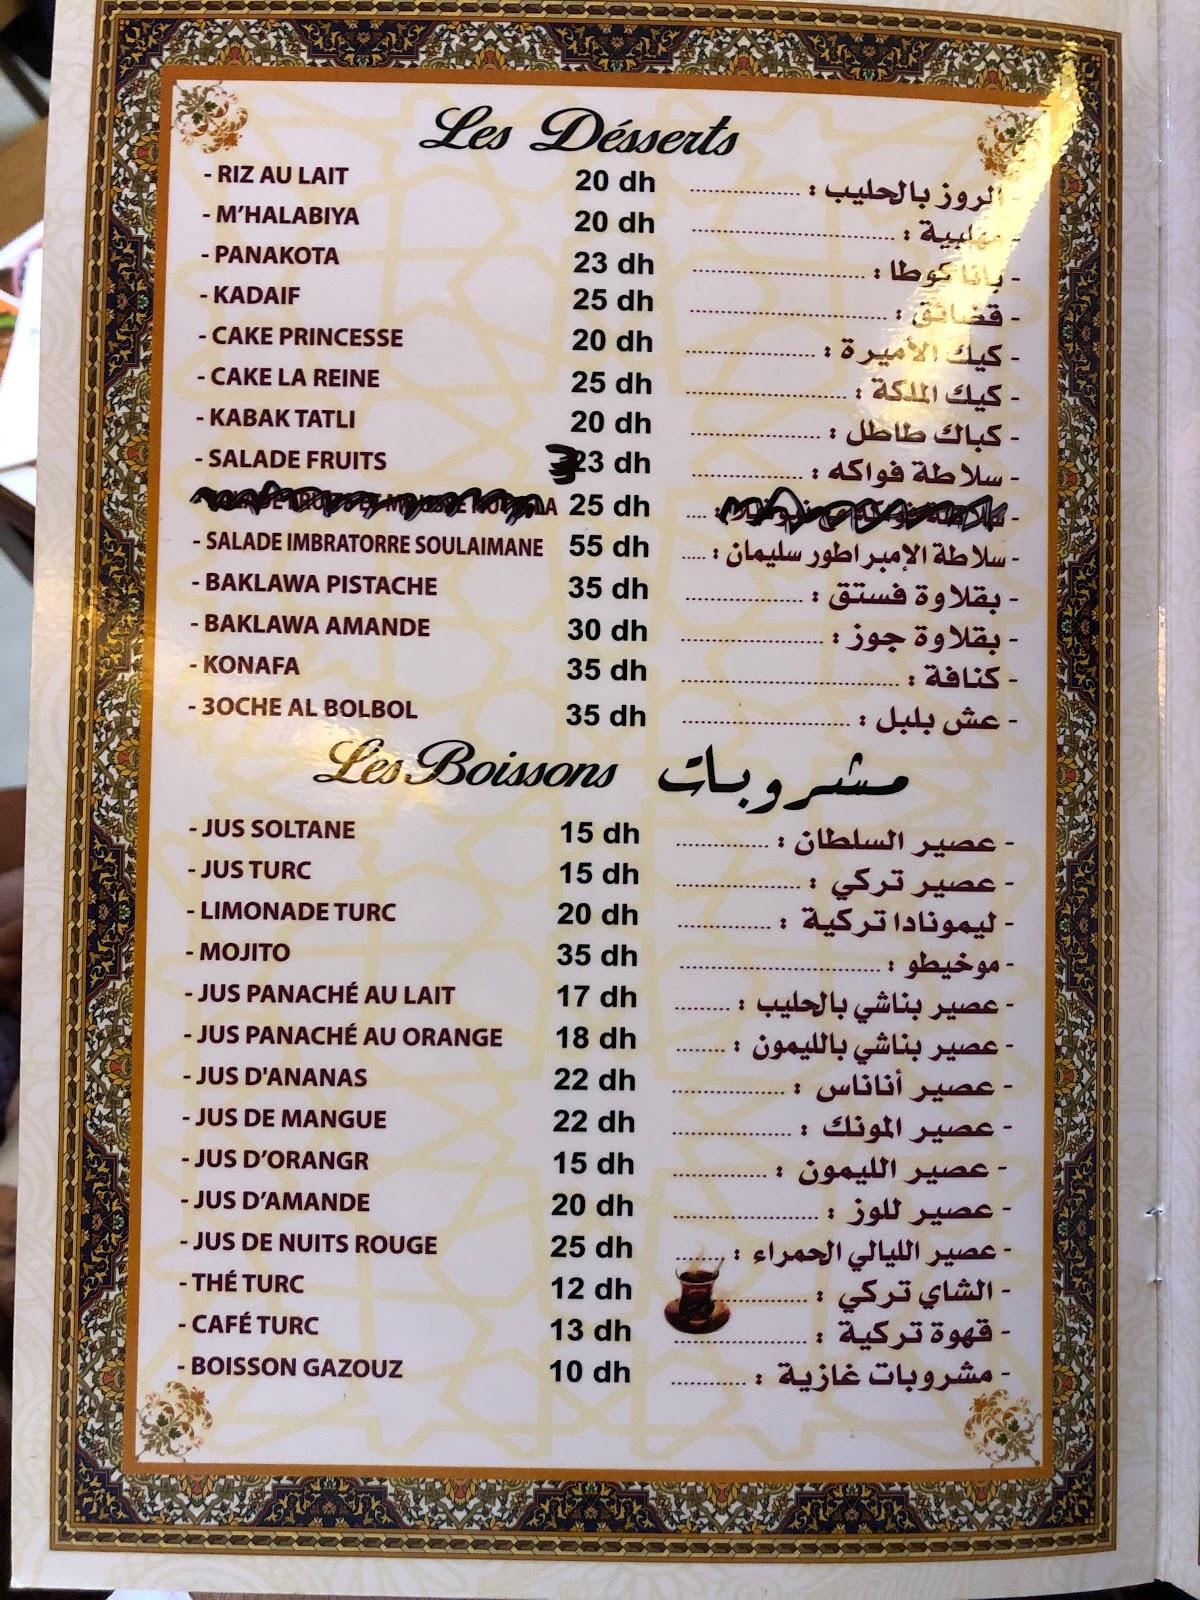 Les Désserts
- RIZ AU LAIT 20 dh - الروز بالحليب : ....................
- M'HALABIYA 20 dh - مهلبية : ....................
- PANAKOTA 23 dh - بانا كوطا : ....................
- KADAIF 25 dh - قضائق : ....................
- CAKE PRINCESSE 20 dh - كيك الأميرة : ....................
- CAKE LA REINE 25 dh - كيك الملكة : ....................
- KABAK TATLI 20 dh - كباك طاطل : ....................
- SALADE FRUITS 23 dh - سلاطة فواكه : ....................
25 dh
- SALADE IMBRATORRE SOULAIMANE 55 dh - سلاطة الإمبراطور سليمان : .....
- BAKLAWA PISTACHE 35 dh - بقلاوة فستق : ....................
- BAKLAWA AMANDE 30 dh - بقلاوة جوز : ....................
- KONAFA 35 dh - كنافة : ....................
- 3OCHE AL BOLBOL 35 dh - عش بلبل : ....................
Les Boissons مشروبات
- JUS SOLTANE 15 dh - عصير السلطان : ....................
- JUS TURC 15 dh - عصير تركي : ....................
- LIMONADE TURC 20 dh - ليمونادا تركية : ....................
- MOJITO 35 dh - موخيطو : ....................
- JUS PANACHÉ AU LAIT 17 dh - عصير بناشي بالحليب : ..........
- JUS PANACHÉ AU ORANGE 18 dh - عصير بناشي بالليمون : ........
- JUS D'ANANAS 22 dh - عصير أناناس : ....................
- JUS DE MANGUE 22 dh - عصير المونك : ....................
- JUS D'ORANGR 15 dh - عصير الليمون : ....................
- JUS D'AMANDE 20 dh - عصير للوز : ....................
- JUS DE NUITS ROUGE 25 dh - عصير الليالي الحمراء : ........
- THÉ TURC 12 dh - الشاي تركي : ....................
- CAFÉ TURC 13 dh - قهوة تركية : ....................
- BOISSON GAZOUZ 10 dh - مشروبات غازية : ............